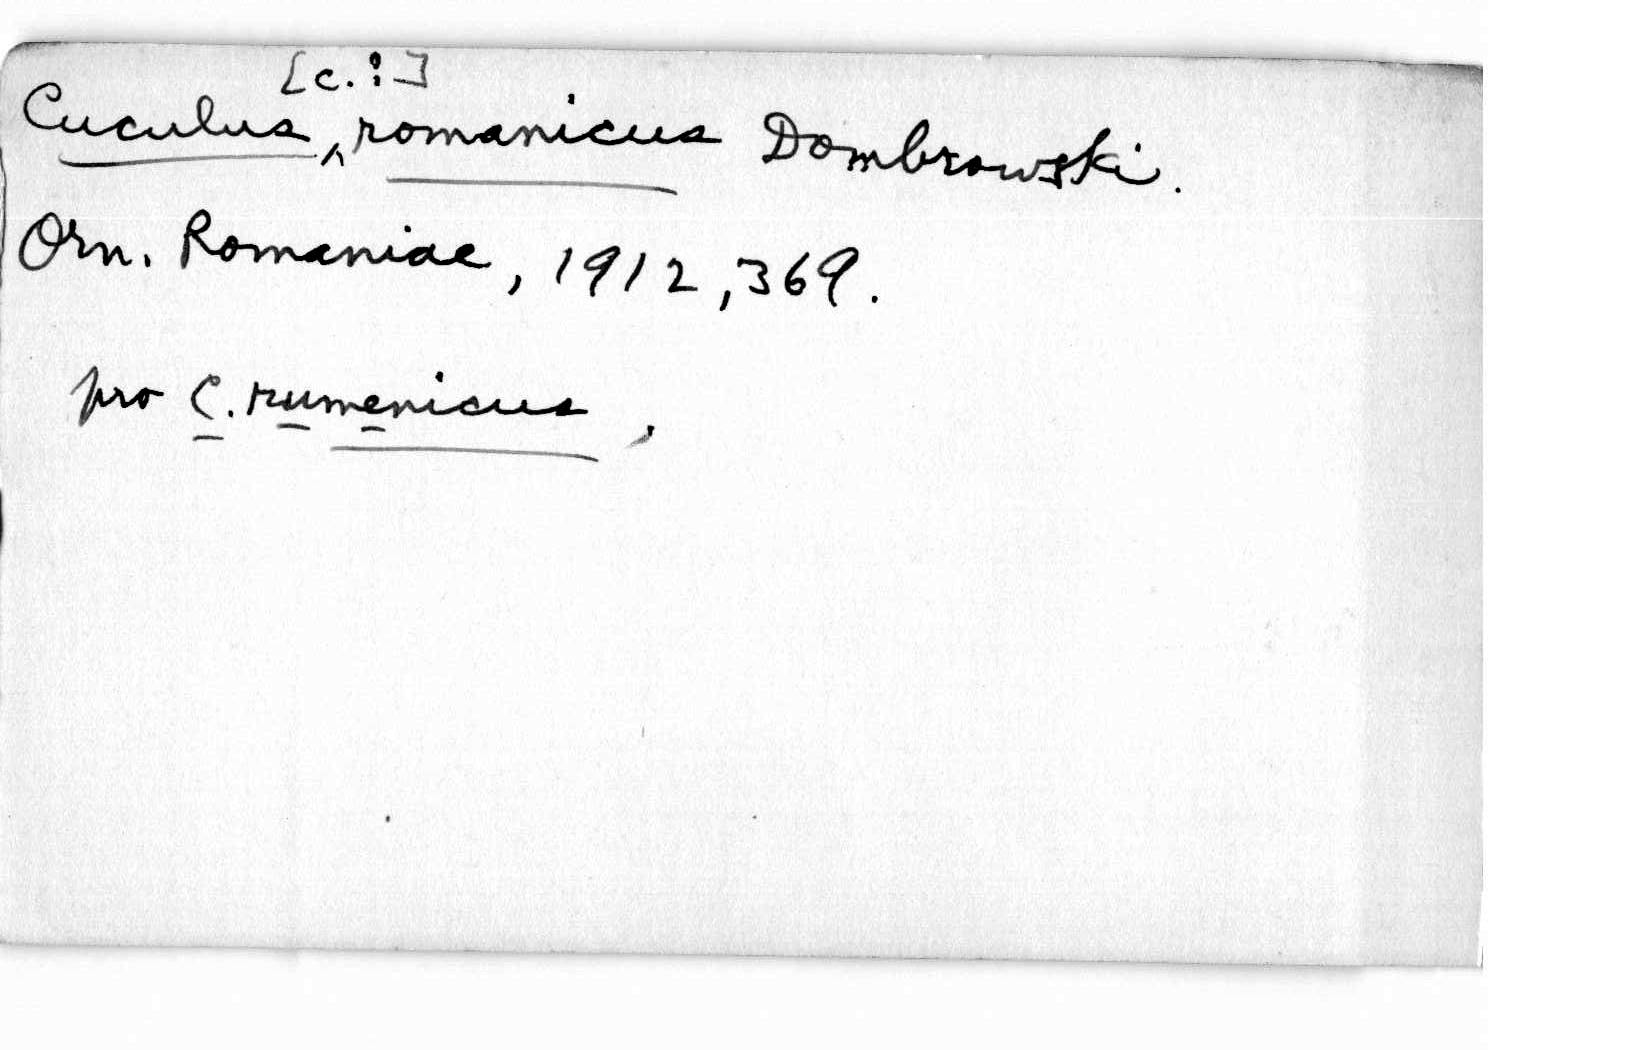 [c.?]
Cuculus ‸ romanicus Dombrowski.
Orn. Romaniae, 1912, 369.
pro C. rumenicus,